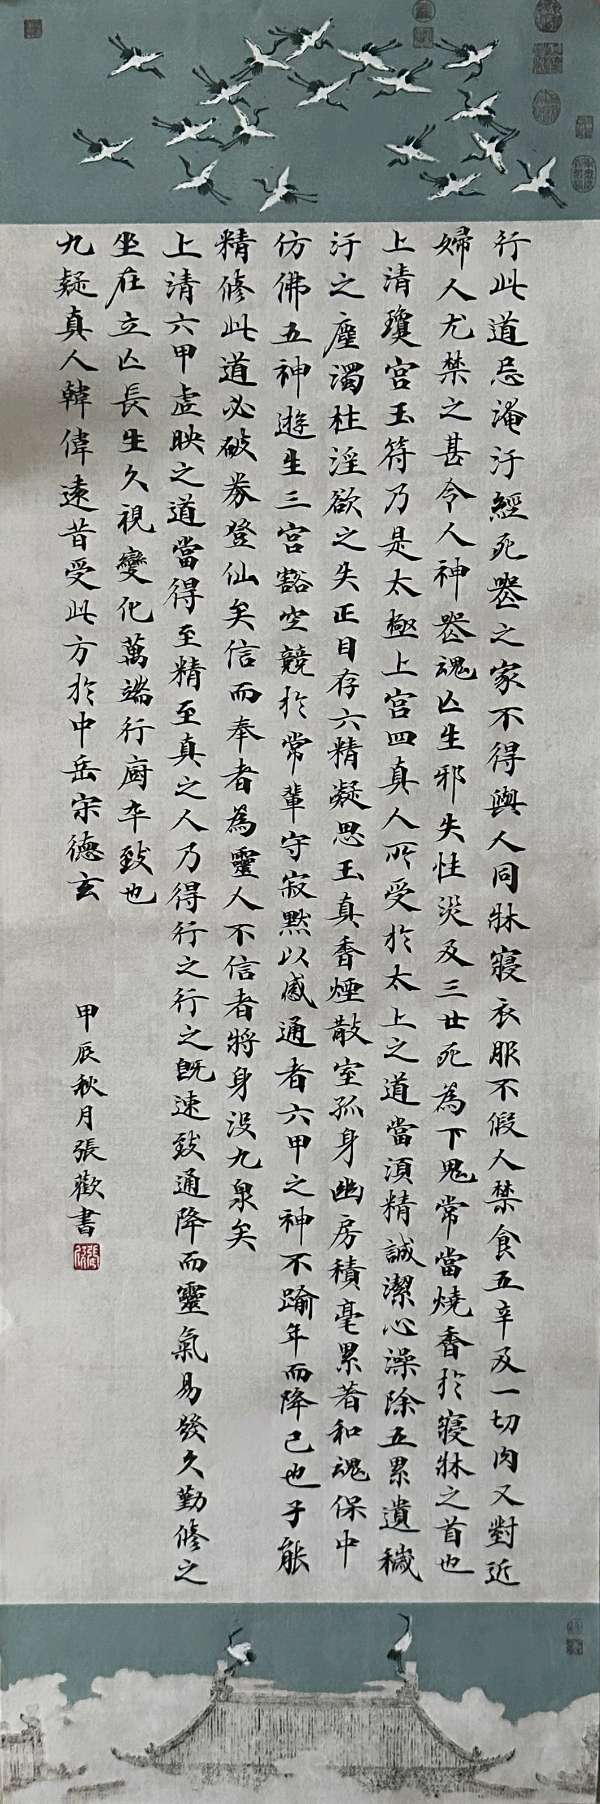 行此道忌淹汙經死䘮之家不得與人同牀寢衣服不假人禁食五辛及一切肉又對近
婦人尤禁之甚令人神䘮魂亾生邪失性災及三世死為下鬼常當燒香於寢牀之首也
上清瓊宮玉符乃是太極上宮四真人所受於太上之道當湏精誠潔心澡除五累遺穢
汙之塵濁杜淫欲之失正目存六精凝思玉真香煙散室孤身幽房積毫累著和魂保中
仿佛五神遊生三宮豁空競於常輩守寂默以感通者六甲之神不踰年而降已也子能
精修此道必破券登仙矣信而奉者為靈人不信者將身没九泉矣
上清六甲虛映之道當得至精至真之人乃得行之行之既速致通降而靈氣易發久勤修之
坐在立亾長生久視變化萬端行廚卒致也
九疑真人韓偉遠昔受此方於中岳宋德玄
甲辰秋月張歡書